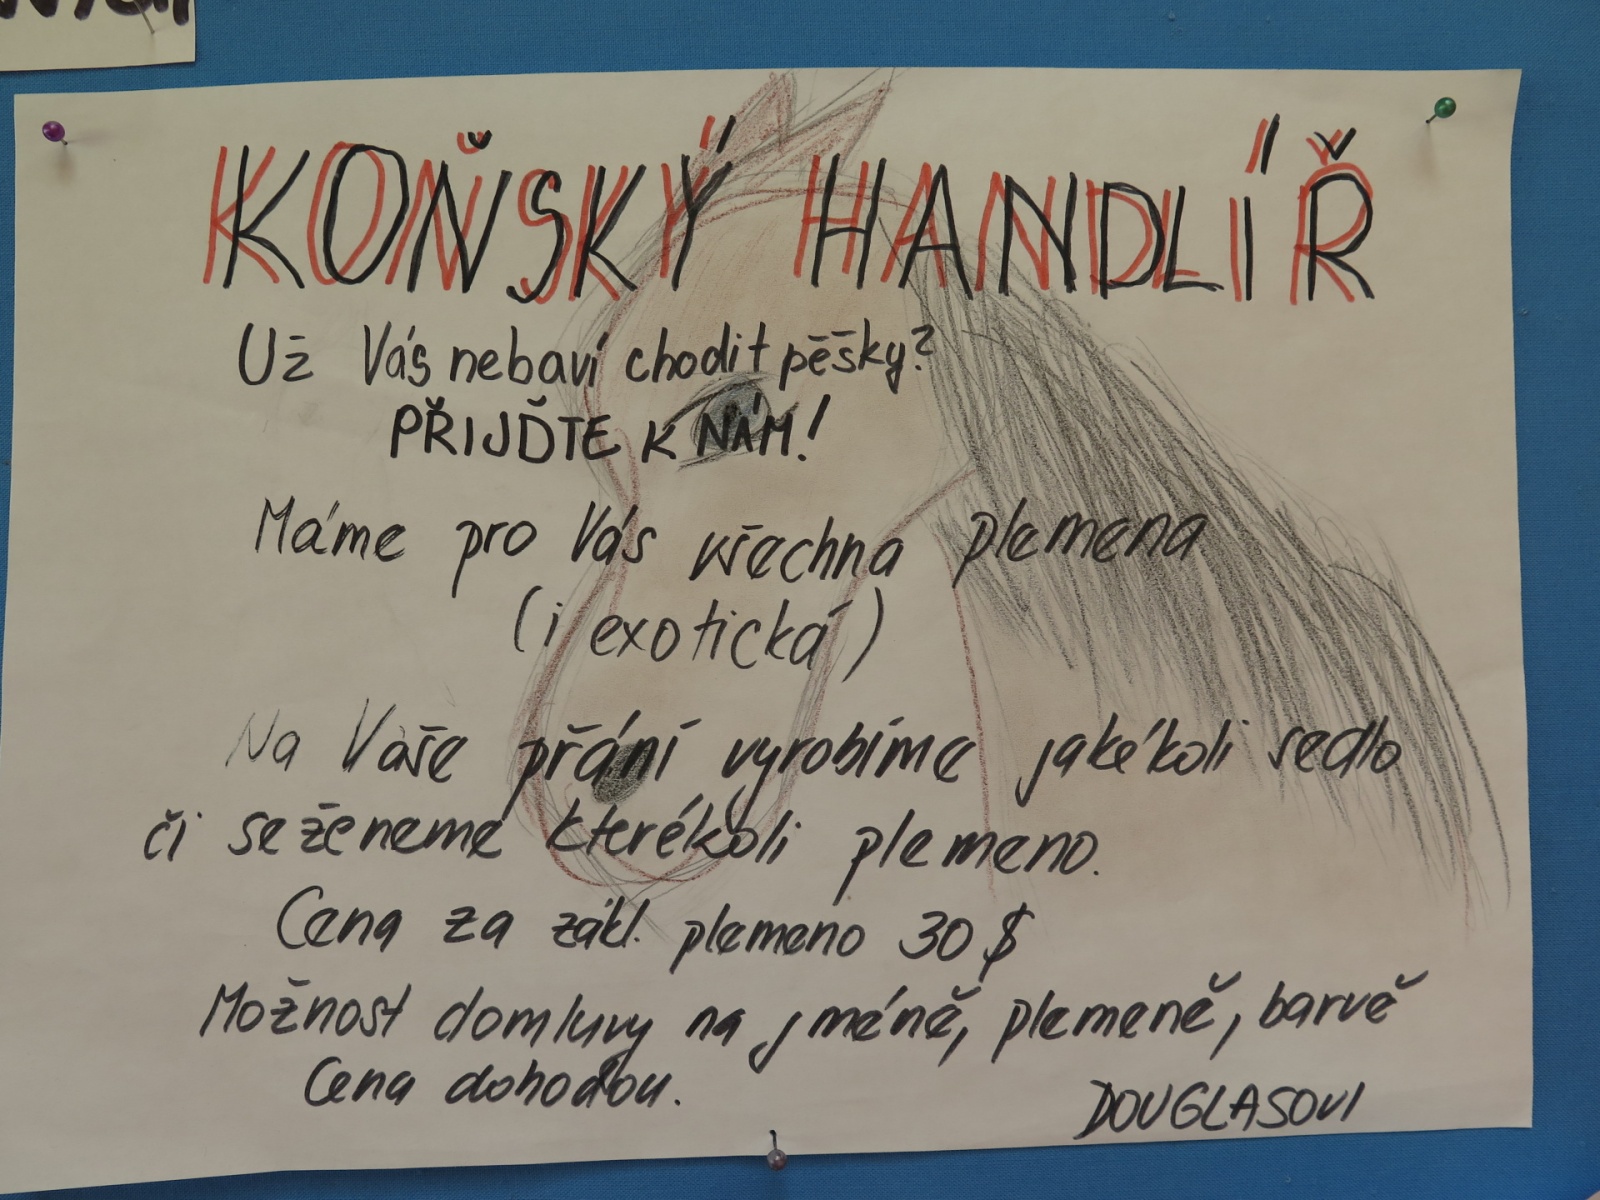 KOŇSKÝ HANDLÍŘ
Už Vás nebaví chodit pěšky?
PŘIJĎTE K NÁM!
Máme pro Vás všechna plemena
(i exotická)
Na Vaše přání vyrobíme jakékoli sedlo
či seženeme kterékoli plemeno.
Cena za zákl. plemeno 30 $
Možnost domluvy na jméně, plemeně, barvě
Cena dohodou.
DOUGLASOVI